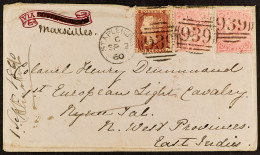 VIA
Marseilles.
C
SP 2
60
939
939
939
Colonel Henry Drummond
1st European Light Cavalry
Nynee Tal.
N. West Provinces.
East Indies